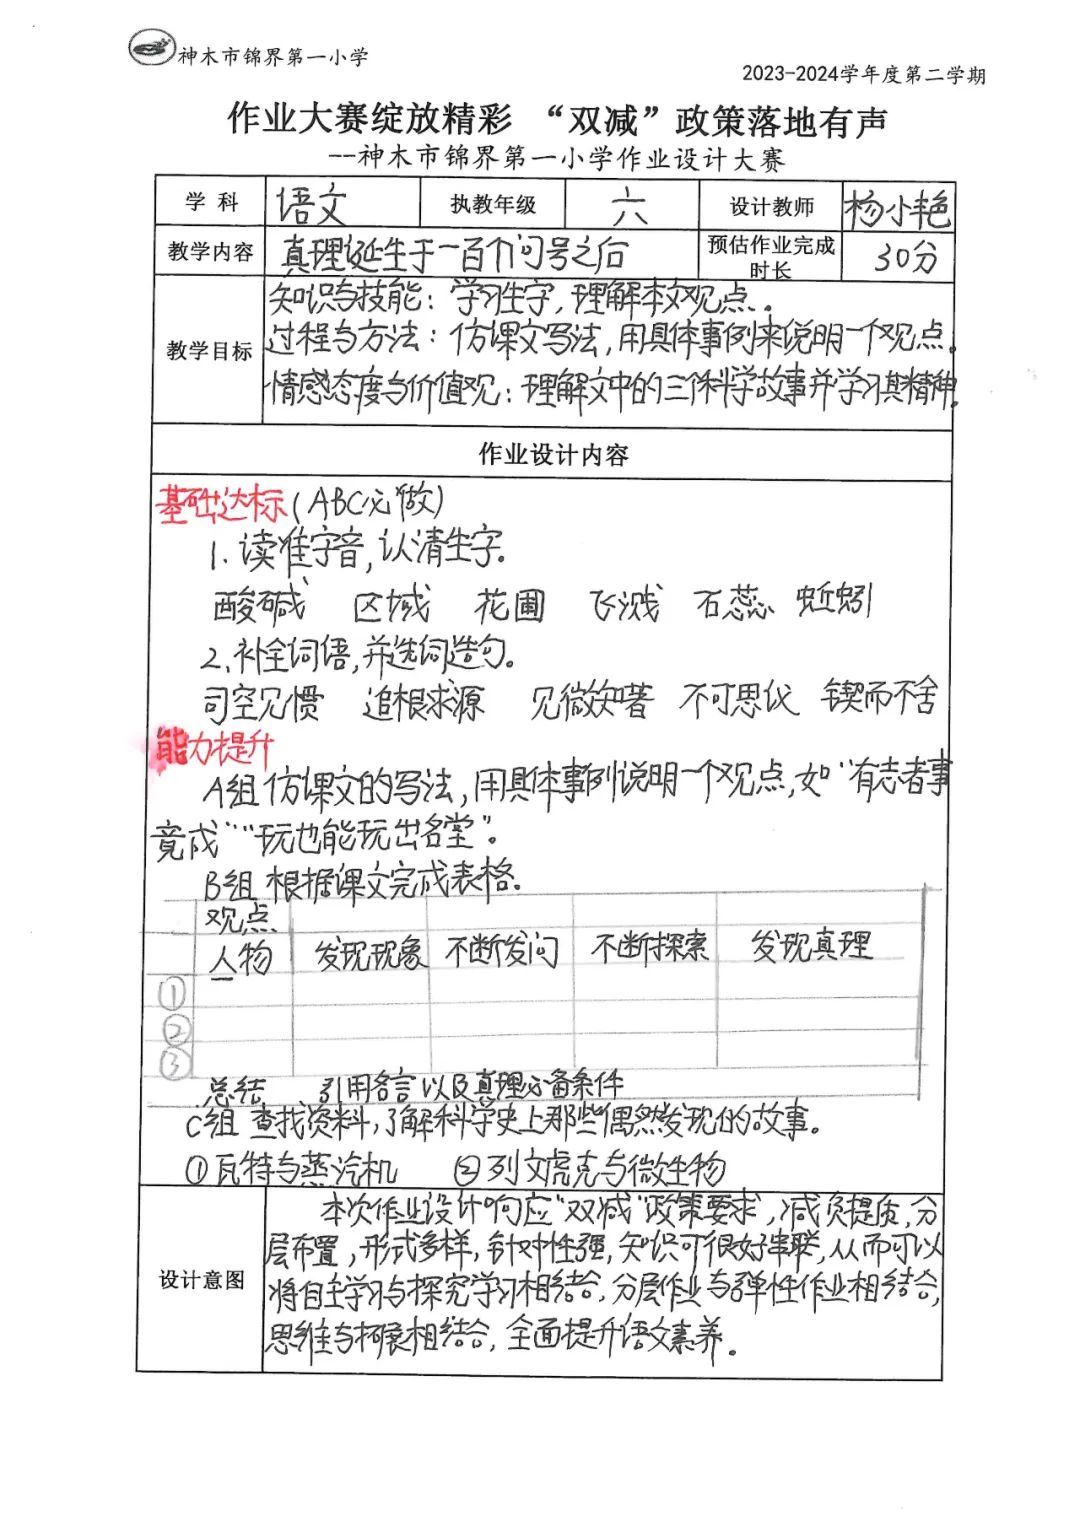 神木市锦界第一小学
2023-2024学年度第二学期
作业大赛绽放精彩 “双减”政策落地有声
--神木市锦界第一小学作业设计大赛
学 科 语文 执教年级 六 设计教师 杨小艳
教学内容 真理诞生于一百个问号之后 预估作业完成时长 30分
教学目标
知识与技能：学习生字，理解本文观点。
过程与方法：仿课文写法，用具体事例来说明一个观点。
情感态度与价值观：理解文中的三个科学故事并学习其精神。
作业设计内容
基础达标(ABC必做)
1.读准字音,认清生字.
酸碱 区域 花圃 飞溅 石蕊 蚯蚓
2.补全词语,并选词造句。
司空见惯 追根求源 见微知著 不可思议 锲而不舍
能力提升
A组 仿课文的写法,用具体事例说明一个观点,如“有志者事
竟成”“玩也能玩出名堂”。
B组 根据课文完成表格.
观点
人物 发现现象 不断发问 不断探索 发现真理
①
②
③
总结 引用名言以及真理必备条件
C组 查找资料,了解科学史上那些偶然发现的故事。
①瓦特与蒸汽机 ②列文虎克与微生物
设计意图
本次作业设计响应“双减”政策要求,减负提质,分
层布置,形式多样,针对性强,知识可很好串联,从而可以
将自主学习与探究学习相结合,分层作业与弹性作业相结合,
思维与拓展相结合,全面提升语文素养。